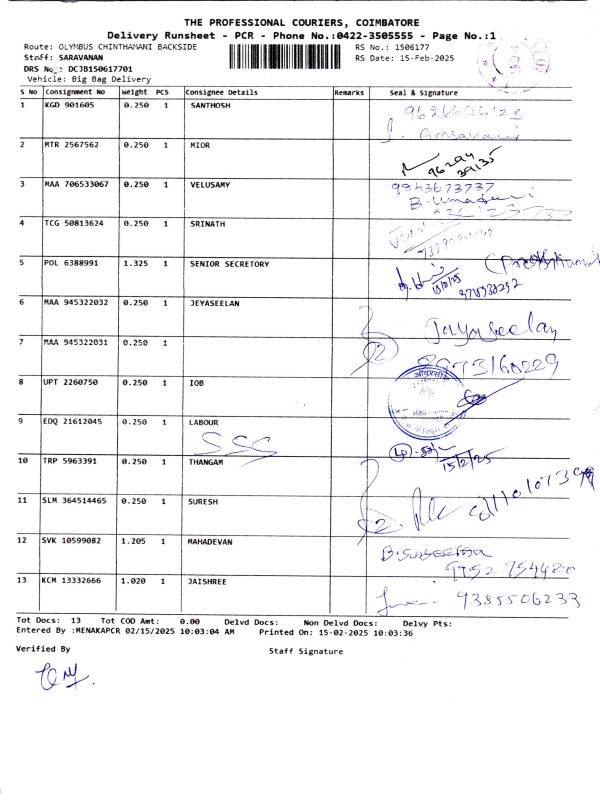 THE PROFESSIONAL COURIERS, COIMBATORE
Delivery Runsheet - PCR - Phone No.:0422-3505555 - Page No.:1
Route: OLYMBUS CHINTHAMANI BACKSIDE RS No.: 1506177
Staff: SARAVANAN RS Date: 15-Feb-2025
DRS No.: DCJB150617701
Vehicle: Big Bag Delivery
S No Consignment No Weight PCS Consignee Details Remarks Seal & Signature
1 KGD 901605 0.250 1 SANTHOSH
2 MTR 2567562 0.250 1 MIOR
96294
39135
3 MAA 706533067 0.250 1 VELUSAMY 9943673737
B.Umadevi
4 TCG 50813624 0.250 1 SRINATH
5 POL 6388991 1.325 1 SENIOR SECRETORY
6 MAA 945322032 0.250 1 JEYASEELAN
Jayaseelan
7 MAA 945322031 0.250 1 2
8973160229
8 UPT 2260750 0.250 1 IOB
9 EDQ 21612045 0.250 1 LABOUR
SSS
15/2/25
10 TRP 5963391 0.250 1 THANGAM
11 SLM 364514465 0.250 1 SURESH
2.
12 SVK 10599082 1.205 1 MAHADEVAN
13 KCM 13332666 1.020 1 JAISHREE
9385506233
Tot Docs: 13 Tot COD Amt: 0.00 Delvd Docs: Non Delvd Docs: Delvy Pts:
Entered By :MENAKAPCR 02/15/2025 10:03:04 AM Printed On: 15-02-2025 10:03:36
Verified By Staff Signature